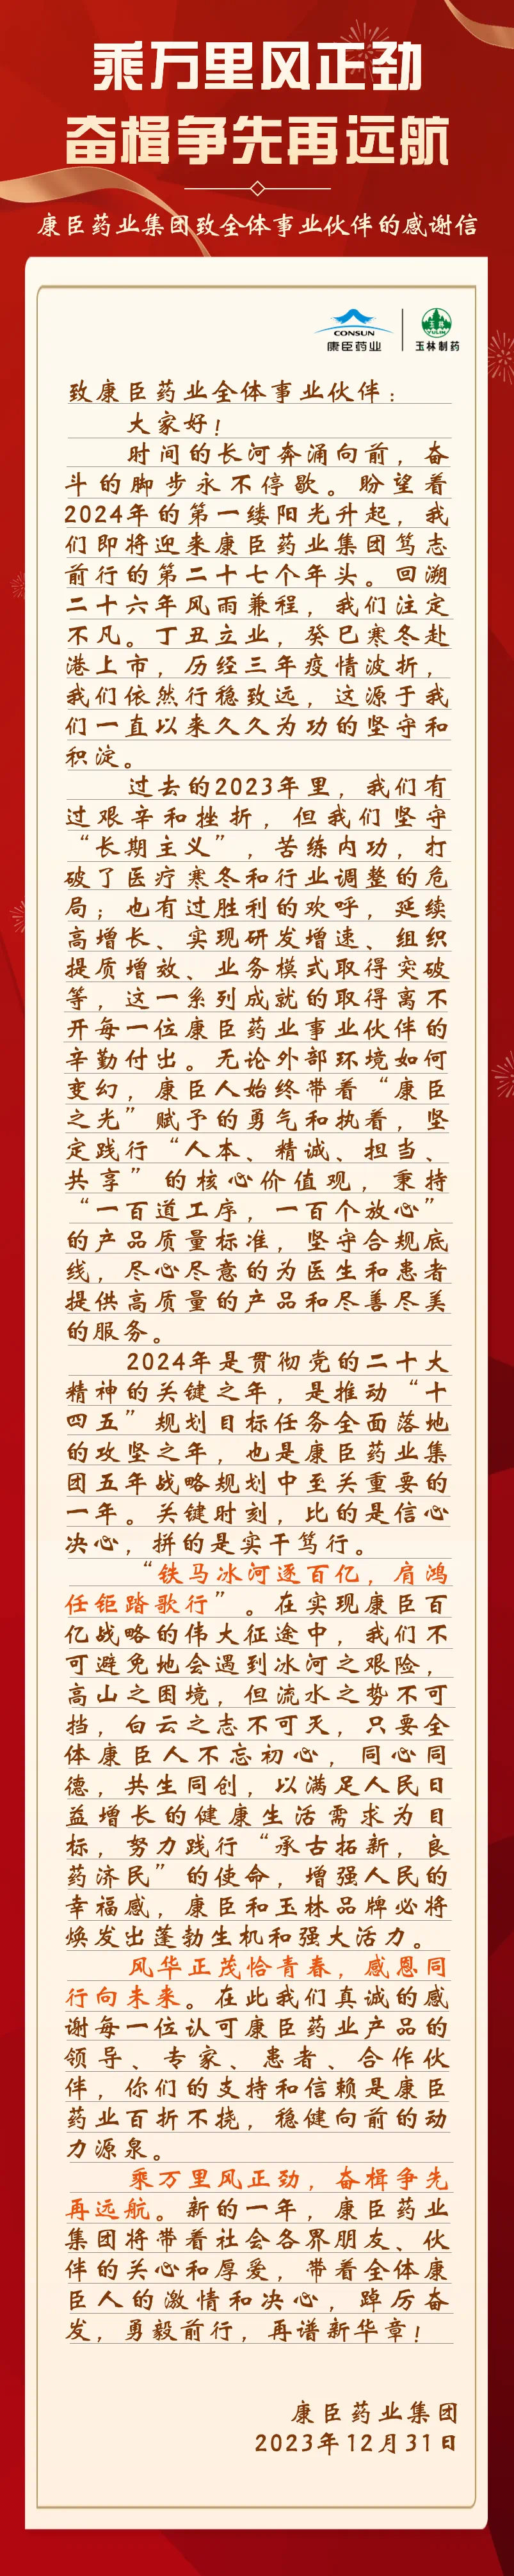 乘万里风正劲
奋楫争先再远航
康臣药业集团致全体事业伙伴的感谢信
CONSUN
康臣药业
玉林
YULIN
玉林制药
致康臣药业全体事业伙伴：
大家好！
时间的长河奔涌向前，奋
斗的脚步永不停歇。盼望着
2024年的第一缕阳光升起，我
们即将迎来康臣药业集团笃志
前行的第二十七个年头。回溯
二十六年风雨兼程，我们注定
不凡。丁丑立业，癸巳寒冬赴
港上市，历经三年疫情波折，
我们依然行稳致远，这源于我
们一直以来久久为功的坚守和
积淀。
过去的2023年里，我们有
过艰辛和挫折，但我们坚守
“长期主义”，苦练内功，打
破了医疗寒冬和行业调整的危
局；也有过胜利的欢呼，延续
高增长、实现研发增速、组织
提质增效、业务模式取得突破
等，这一系列成就的取得离不
开每一位康臣药业事业伙伴的
辛勤付出。无论外部环境如何
变幻，康臣人始终带着“康臣
之光”赋予的勇气和执着，坚
定践行“人本、精诚、担当、
共享”的核心价值观，秉持
“一百道工序，一百个放心”
的产品质量标准，坚守合规底
线，尽心尽意的为医生和患者
提供高质量的产品和尽善尽美
的服务。
2024年是贯彻党的二十大
精神的关键之年，是推动“十
四五”规划目标任务全面落地
的攻坚之年，也是康臣药业集
团五年战略规划中至关重要的
一年。关键时刻，比的是信心
决心，拼的是实干笃行。
“铁马冰河逐百亿，肩鸿
任钜踏歌行”。在实现康臣百
亿战略的伟大征途中，我们不
可避免地会遇到冰河之艰险，
高山之困境，但流水之势不可
挡，白云之志不可灭，只要全
体康臣人不忘初心，同心同
德，共生同创，以满足人民日
益增长的健康生活需求为目
标，努力践行“承古拓新，良
药济民”的使命，增强人民的
幸福感，康臣和玉林品牌必将
焕发出蓬勃生机和强大活力。
风华正茂恰青春，感恩同
行向未来。在此我们真诚的感
谢每一位认可康臣药业产品的
领导、专家、患者、合作伙
伴，你们的支持和信赖是康臣
药业百折不挠，稳健向前的动
力源泉。
乘万里风正劲，奋楫争先
再远航。新的一年，康臣药业
集团将带着社会各界朋友、伙
伴的关心和厚爱，带着全体康
臣人的激情和决心，踔厉奋
发，勇毅前行，再谱新华章！
康臣药业集团
2023年12月31日